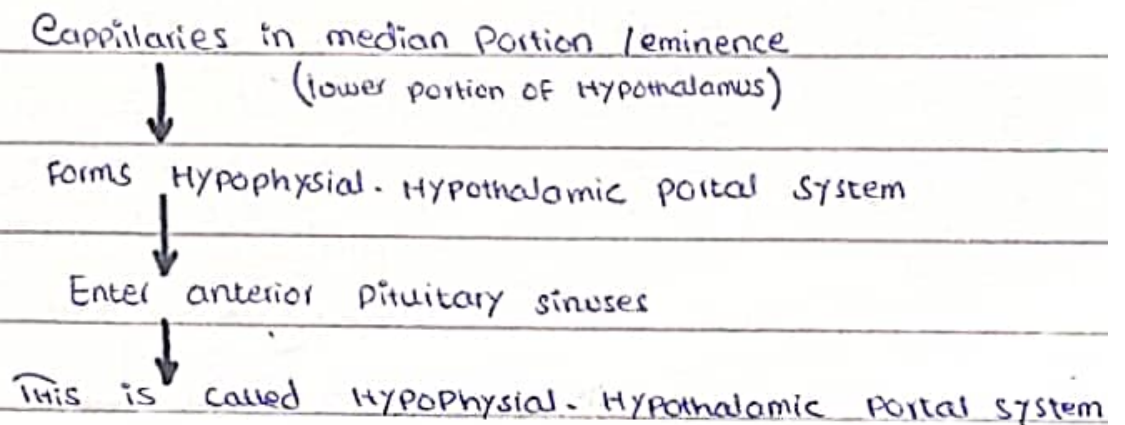 Cappillaries in median Portion / eminence
(lower portion of Hypothalamus)
Forms Hypophysial. Hypothalamic portal system
Enter anterior pituitary sinuses
This is called Hypophysial. Hypothalamic Portal system